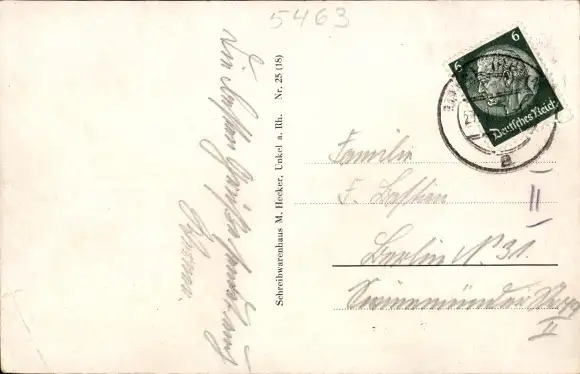 5463
Die besten Grüße sendet aus
Schreibwarenhaus M. Hecker, Unkel a. Rh. Nr. 25 (18)
6 6
Deutsches Reich
a
Familie
F. Basten
Berlin N 31.
Swinemünder Str 99
II
II